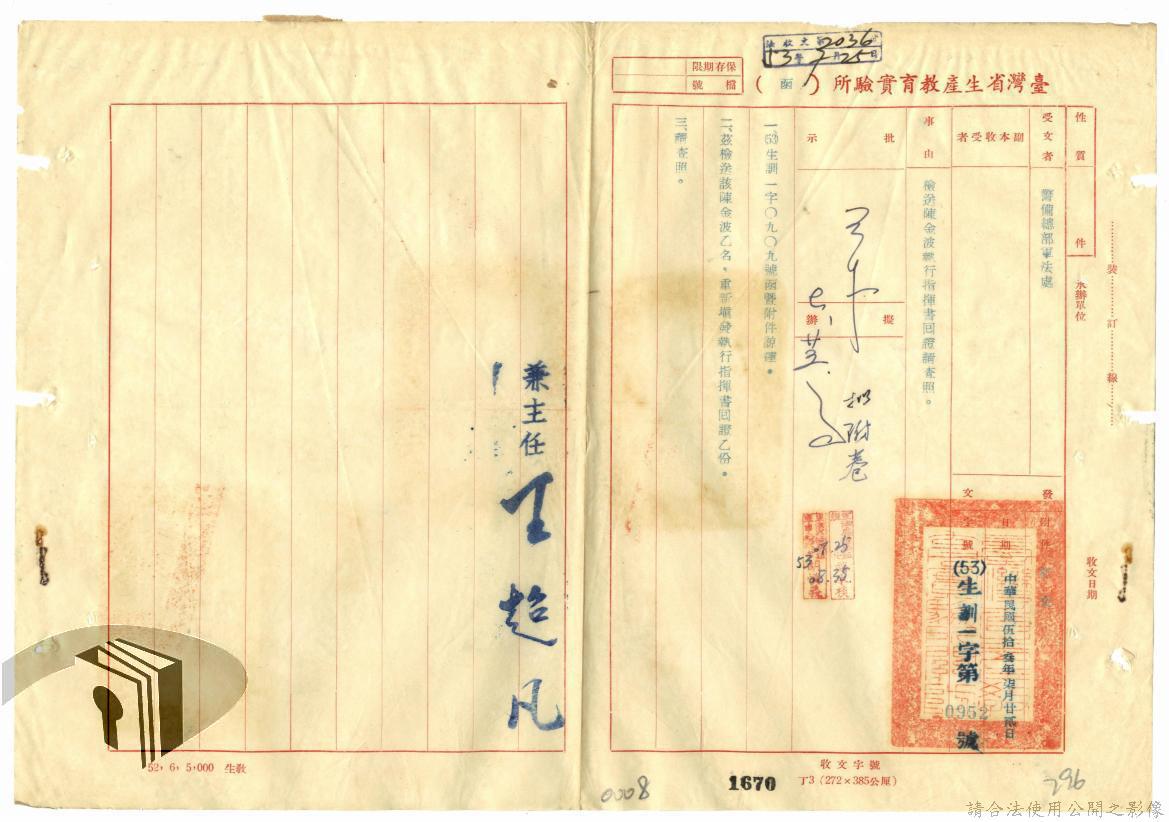 收文 2036
53年7月25日
保存期限
檔號
臺灣省生產教育實驗所（函）
性質
件
受文者
警備總部軍法處
副本收受者
事由
檢送陳金波執行指揮書回證請查照。
批示
擬辦
擬附卷
一、(53)生訓一字〇九〇九號函暨附件諒達。
二、茲檢送該陳金波乙名，重新填發執行指揮書回證乙份。
三、請查照。
兼主任 王超凡
發文
日期
字號
附件
中華民國伍拾叁年柒月廿貳日
(53)生訓一字第0952號
承辦單位
收文日期
裝訂線
53
收文字號
丁3（272×385公厘）
52，6，5,000 生教
0008
1670
296
請合法使用公開之影像